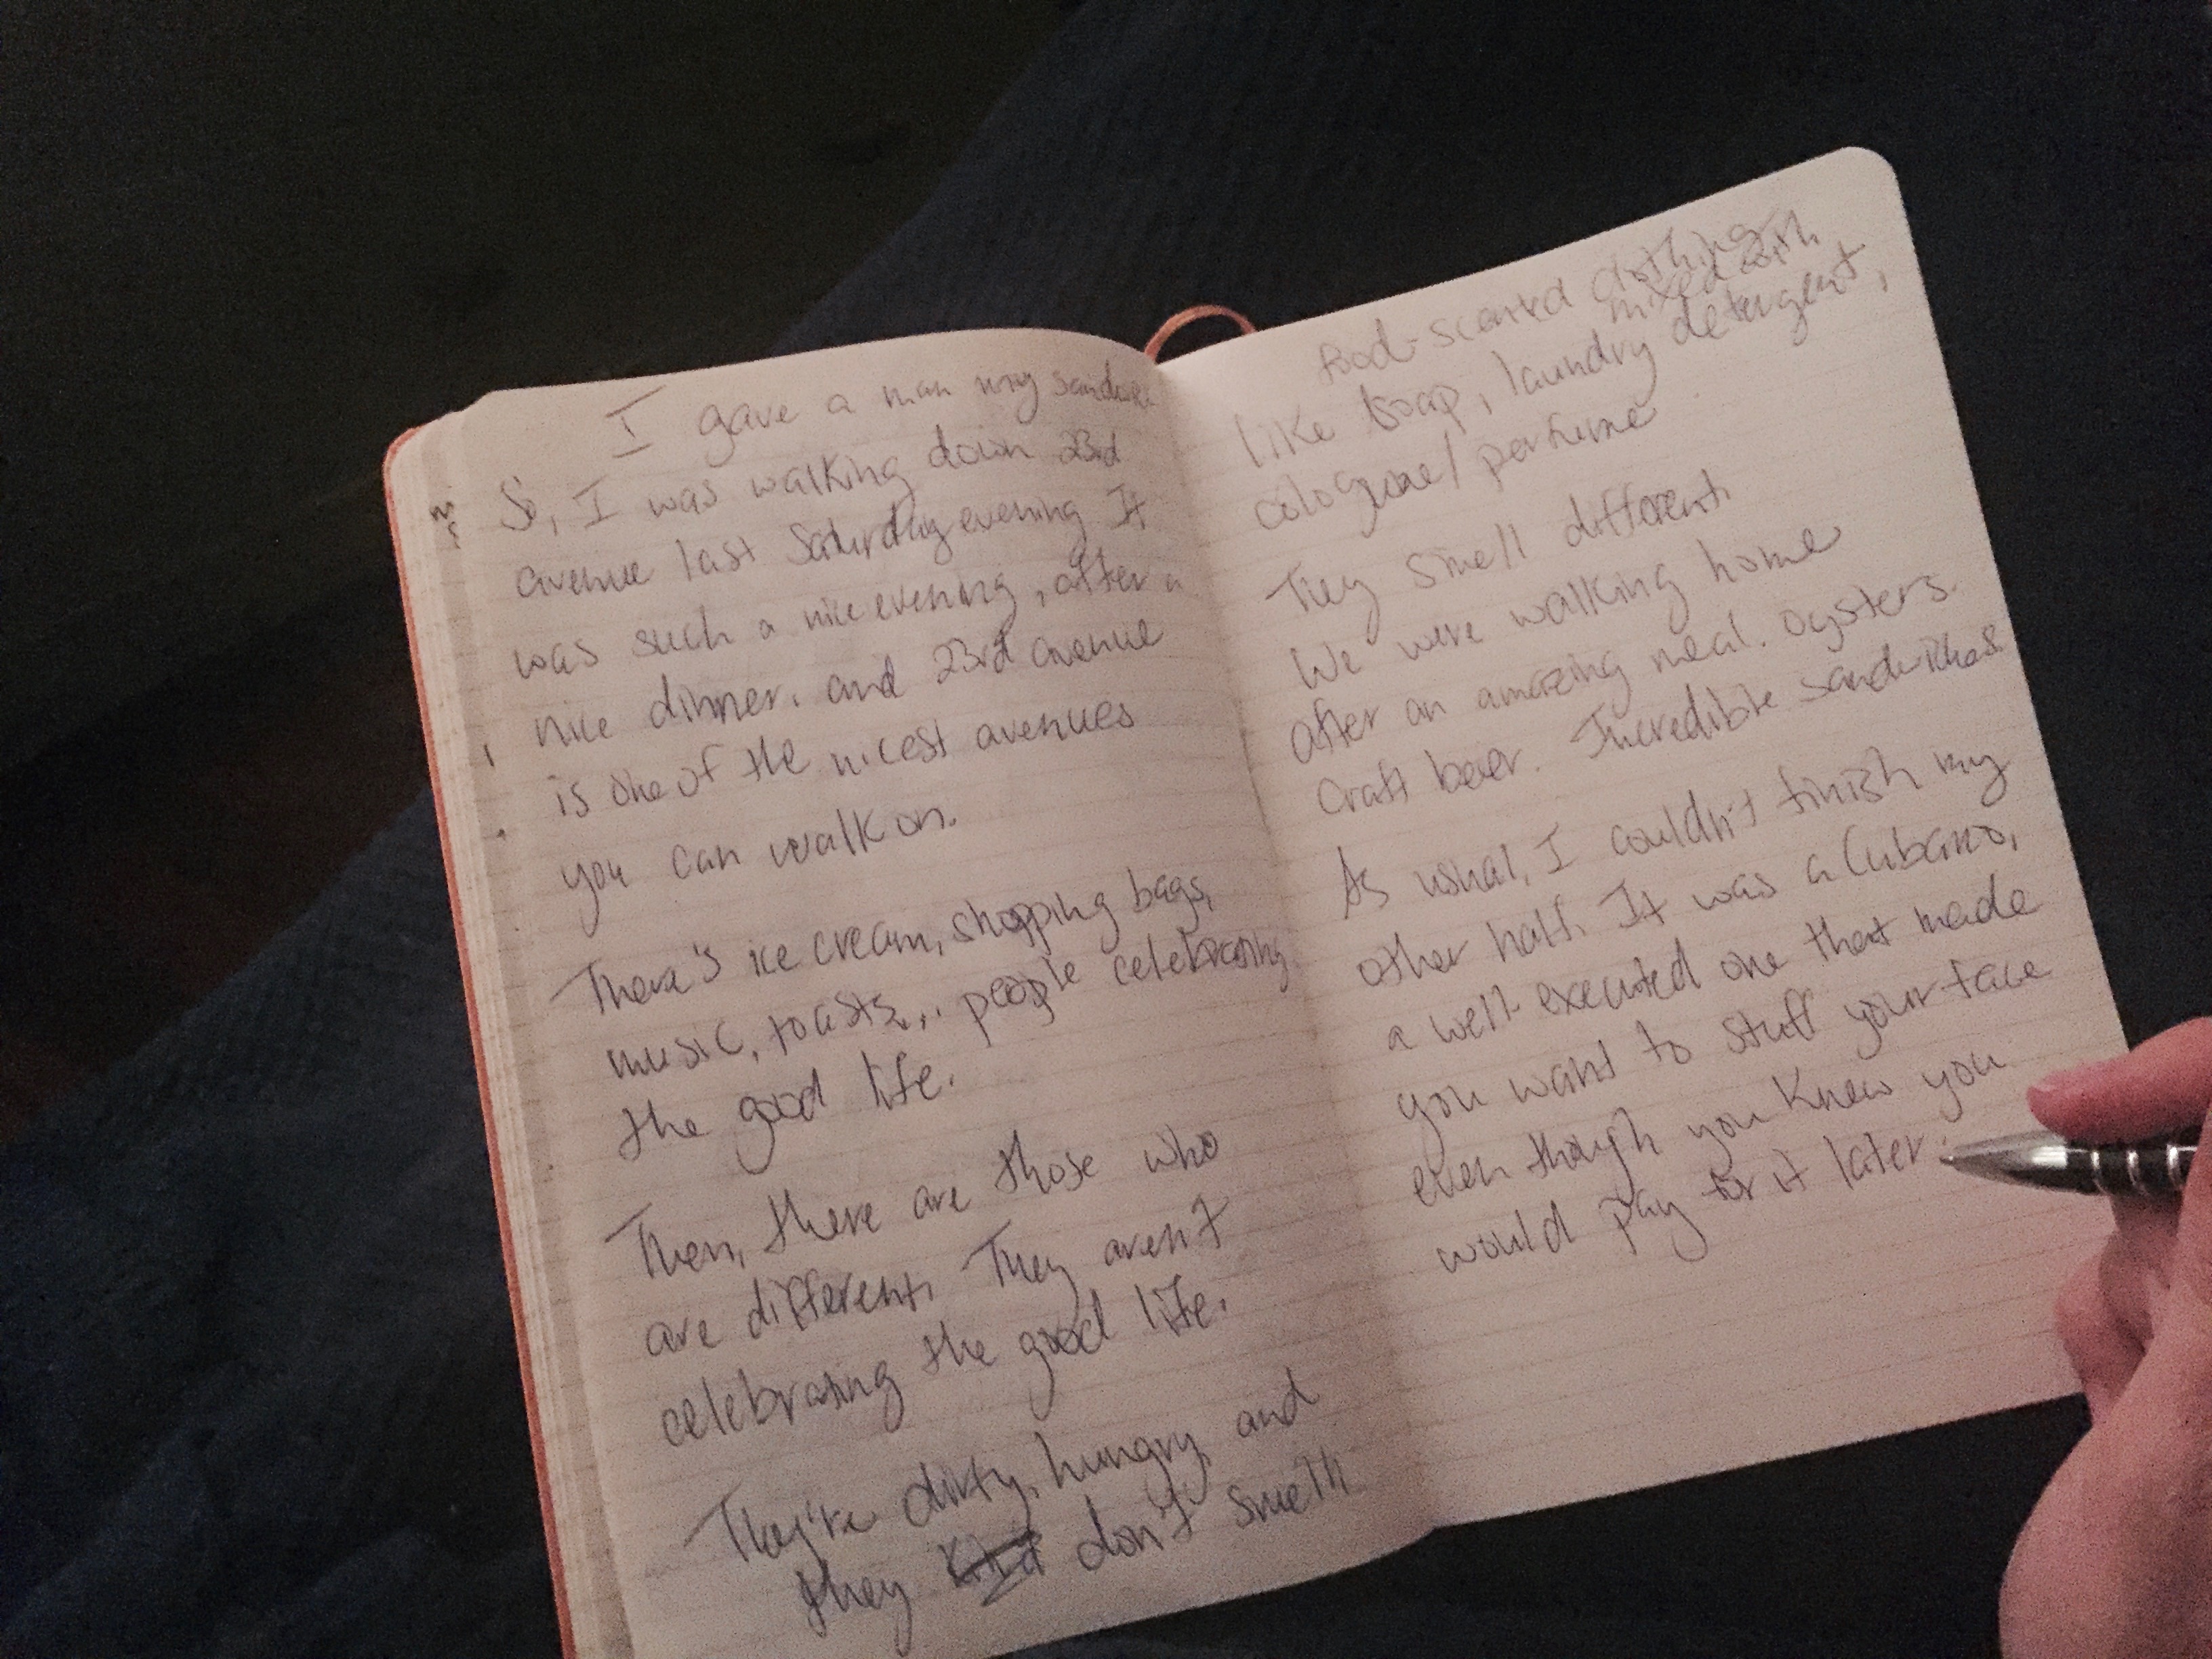 I gave a man my
So, I was walking down 23rd
avenue last Saturday evening It
was such a nice evening, after a
nice dinner. and 23rd avenue
is one of the nicest avenues
you can walk on.
There's ice cream, shopping bags,
music, toasts... people celebrating
the good life.
Then, there are those who
are different. They aren't
celebrating the good life.
They're dirty, hungry, and
they don't smell
food-scented clothing
mixed with
like soap, laundry detergent,
cologne/perfume
They smell different
We were walking home
after an amazing meal. Oysters.
Craft beer. Incredible sandwiches.
As usual, I couldn't finish my
other half. It was a Cubano,
a well-executed one that made
you want to stuff your face
even though you knew you
would pay for it later.